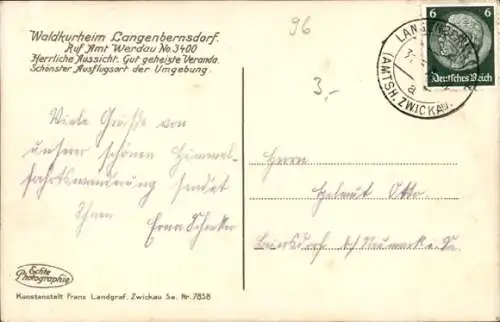 Waldkurheim Langenbernsdorf.
Ruf Amt Werdau No. 3400
Herrliche Aussicht. Gut geheizte Veranda.
Schönster Ausflugsort der Umgebung.
96
3,-
6 6
Deutsches Reich
(AMTSH. ZWICKAU)
a
Viele Grüße von
unserer schönen Himmel-
fahrtswanderung sendet
Ihnen Erna Schenker
Herrn
Helmut Otto.
Beiersdorf b/ Neumark i. Sa.
Echte
Photographie
Kunstanstalt Franz Landgraf, Zwickau Sa. Nr. 7858